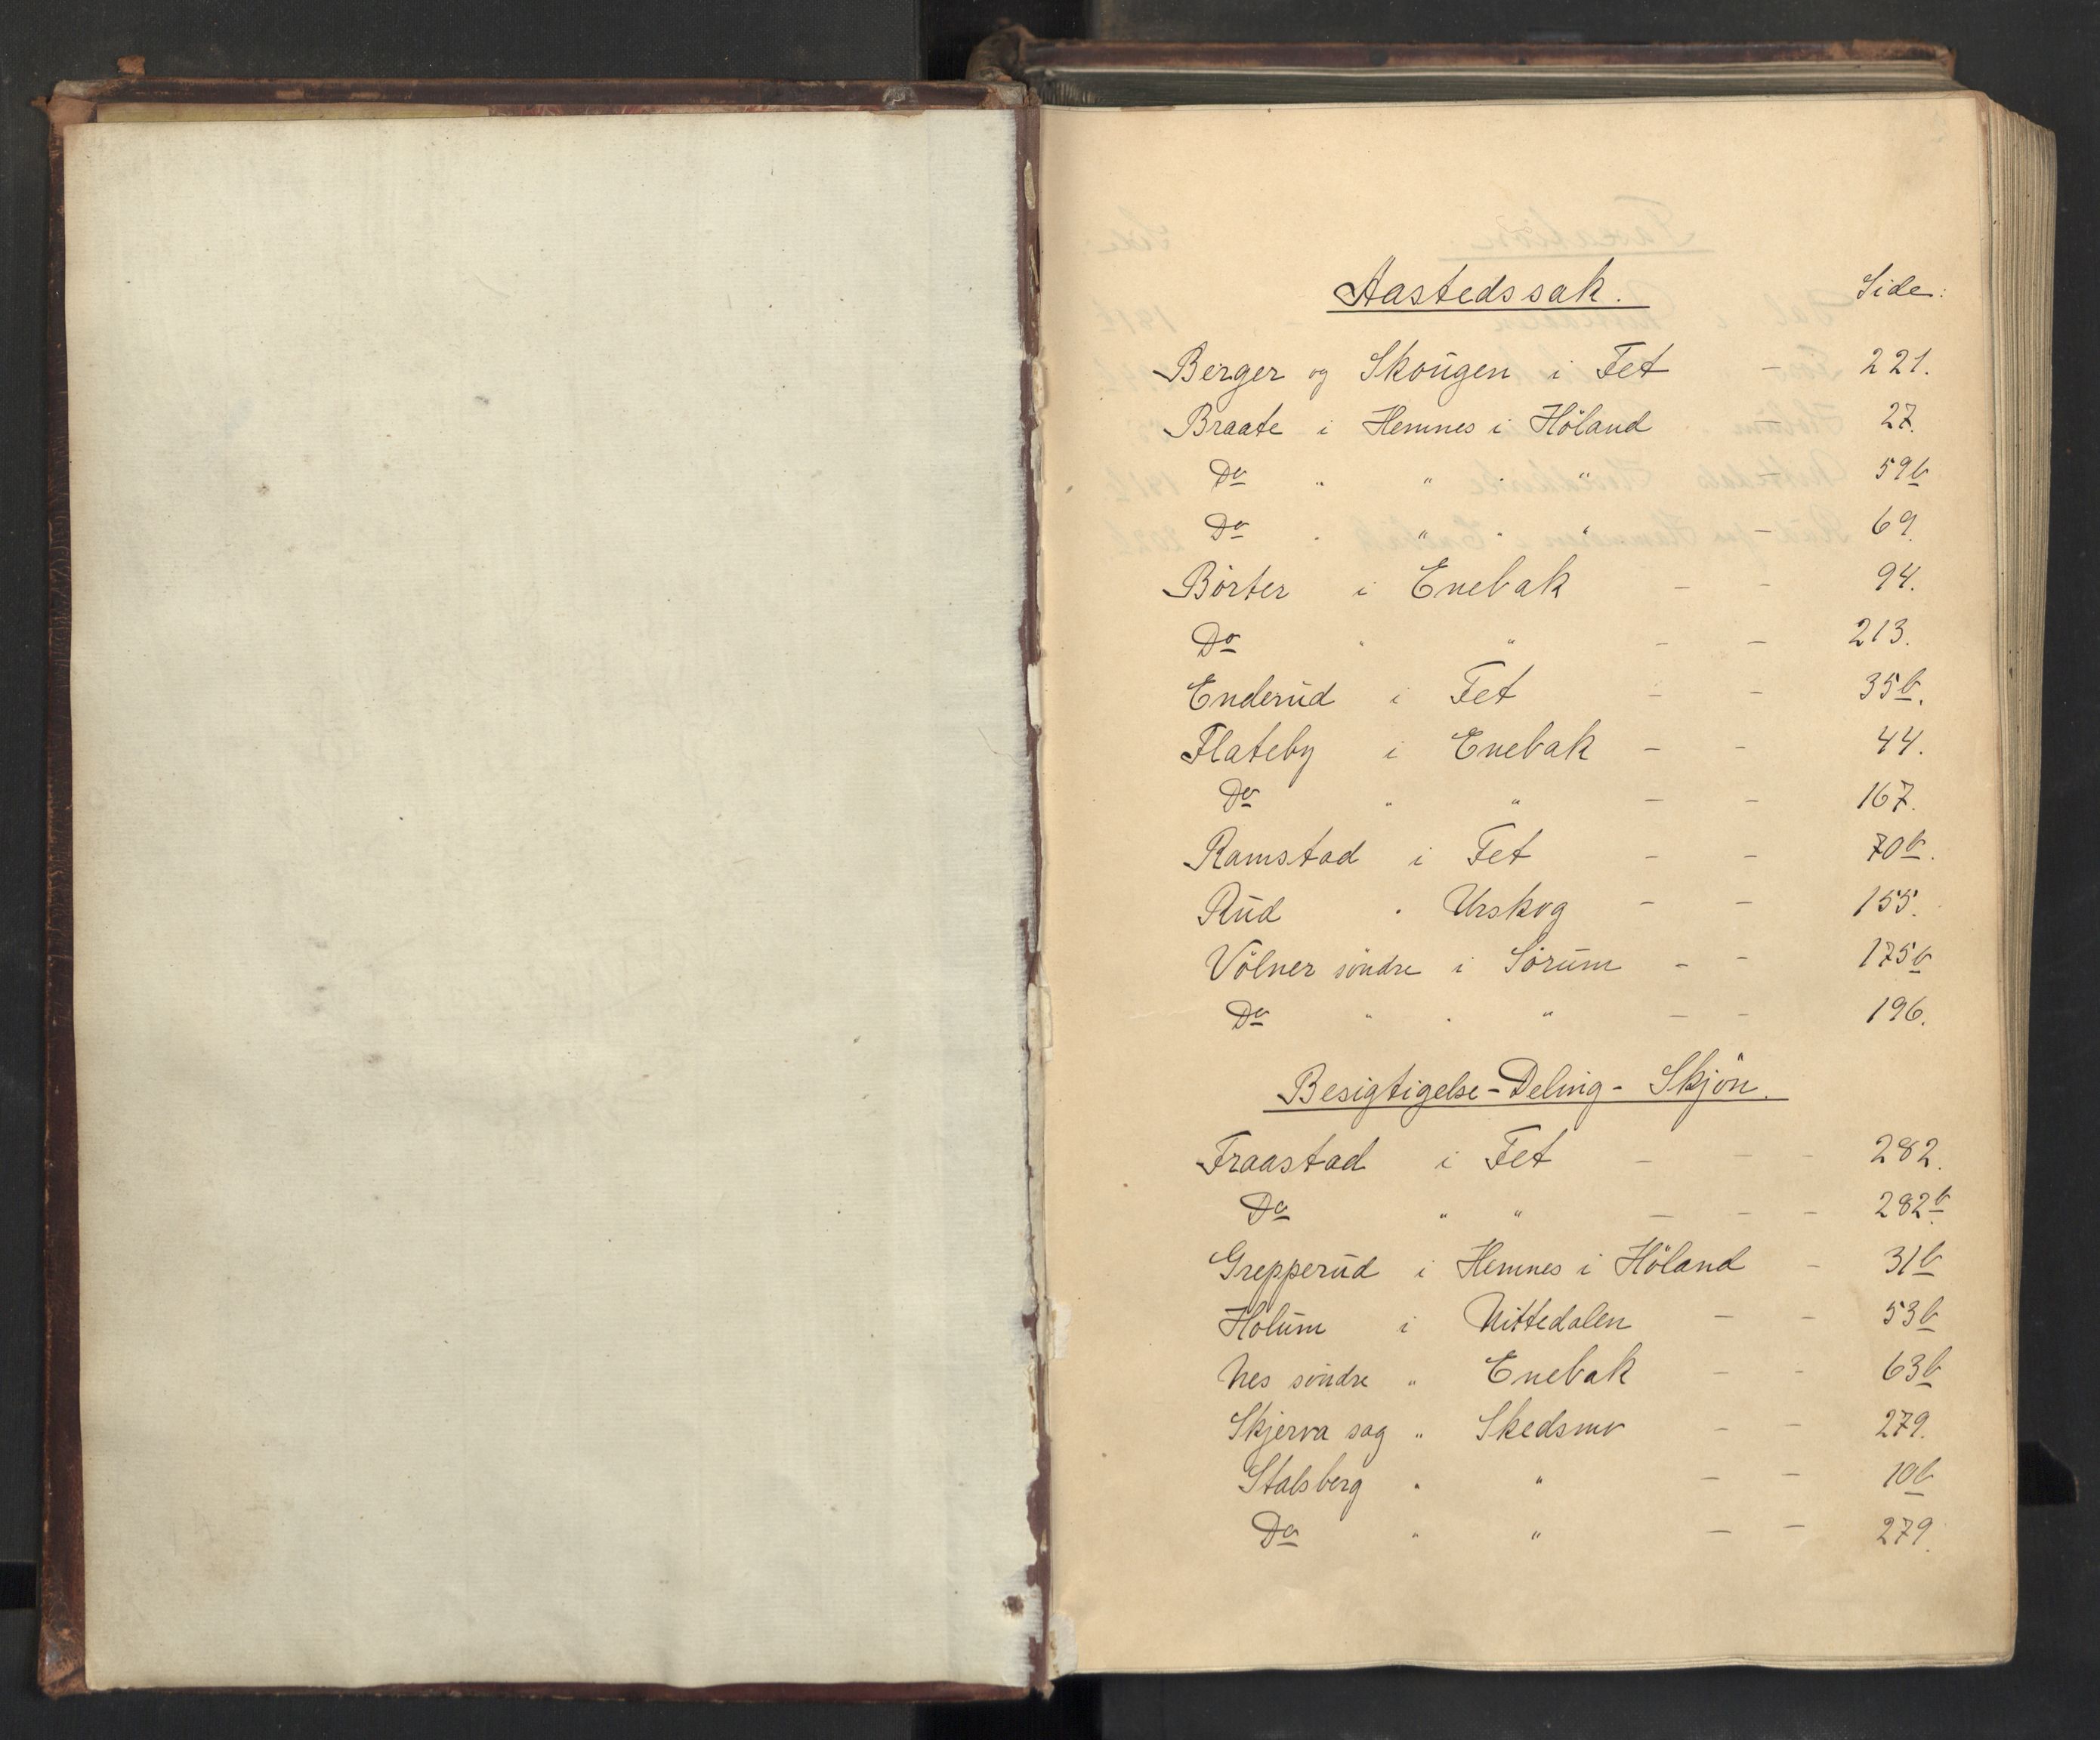 Aastedssak. Side:
Berger og Skougen i Fet — 221.
Braate i Hemnes i Höland — 27.
Do " " " " — 59b
Do " " " " — 69.
Börter i Enebak — — 94.
Do " " — — 213.
Enderud i Fet — — 35b.
Flateby i Enebak — — 44.
Do " " — — 167.
Ramstad i Fet — — 70b.
Rud " Urskog — — 155.
Völner söndre i Sörum — — 175b
Do " " " — — 196.
Besigtigelse-Deling-Skjön.
Fraastad i Fet — — — 282.
Do " " — — — 282b.
Grepperud i Hemnes i Höland — 31b
Holum i Nittedalen — — 53b
Nes söndre " Enebak — — 63b
Skjerva sag " Skedsmo — — 279.
Stalsberg " " — — 10b
Do " " — — 279.